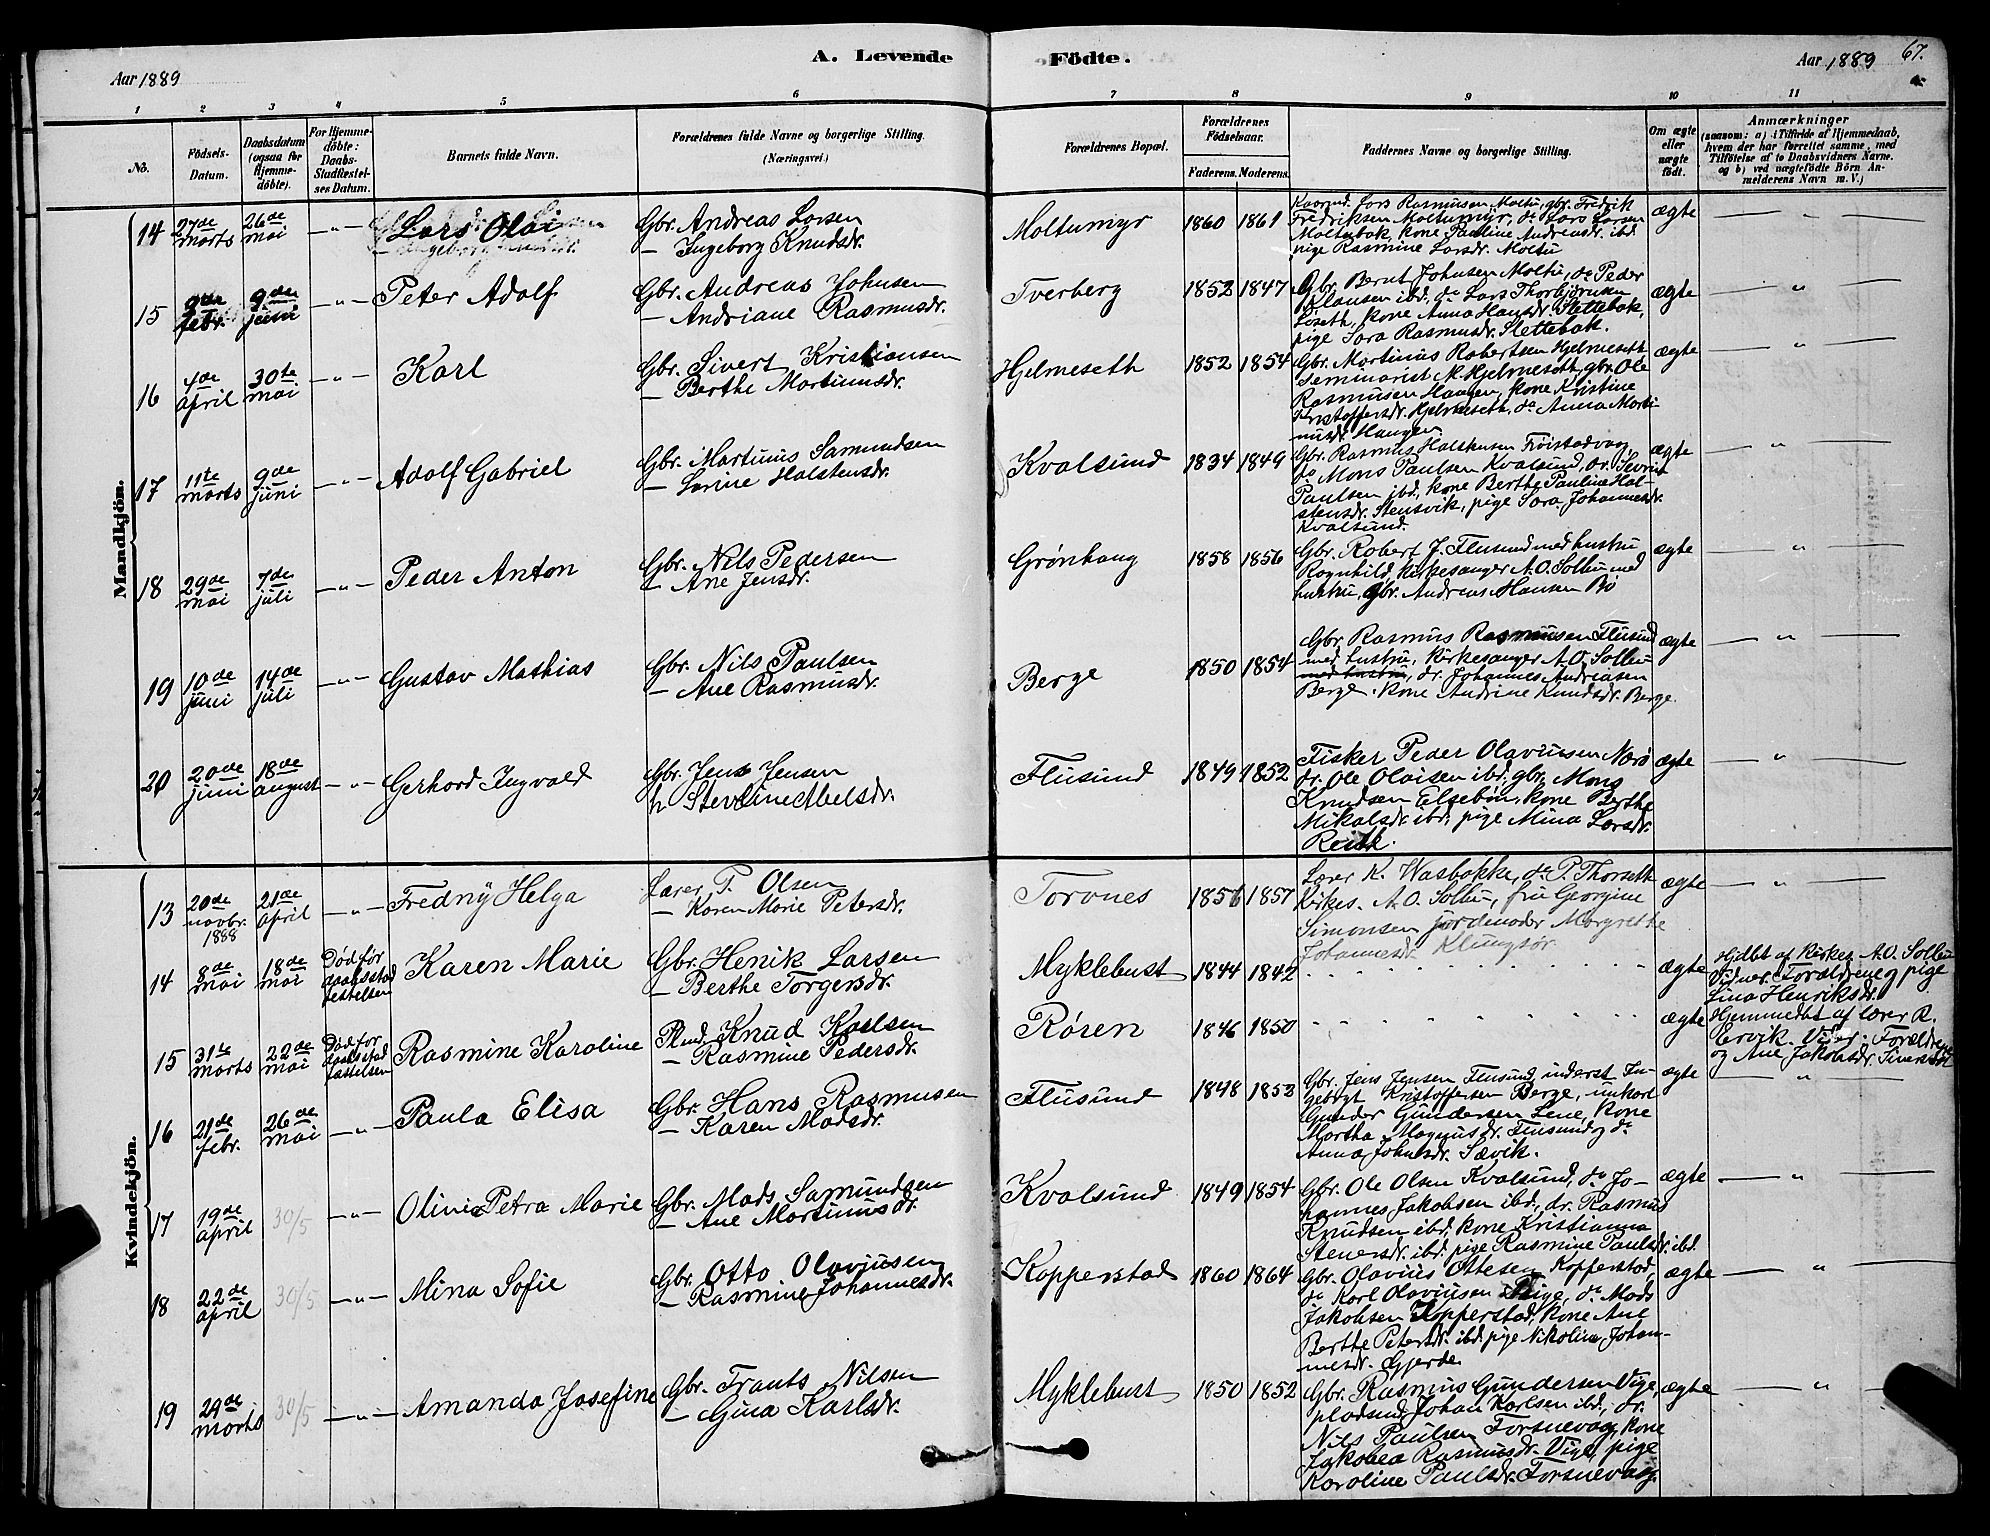 Aar 1889
A. Levende
Födte.
Aar 1889
67.
1 2 3 4 5 6 7 8 9 10 11
No.
Födsels-
Datum.
Daabsdatum
(ogsaa for
Hjemme-
döbte).
For Hjemme-
döbte:
Daabs-
Stadfæstel-
ses Datum.
Barnets fulde Navn.
Forældrenes fulde Navne og borgerlige Stilling.
(Næringsvei.)
Forældrenes Bopæl.
Forældrenes
Födselsaar.
Faderens. Moderens.
Faddernes Navne og borgerlige Stilling.
Om ægte
eller
uægte
født.
Anmærkninger
(saasom: a) i Tilfælde af Hjemmedaab,
hvem der har forrettet samme, med
Tilföielse af to Daabsvidners Navne.
og b) ved uægtefödte Börn An-
melderens Navn m. V.)
Mandkjön.
14 27de marts 26de mai — " — Lars Olai
Gbr. Andreas Larsen
— Ingeborg Knudsdr.
Moltumyr 1860 1861
Lars Rasmussen Moltu, gbr. Fredrik
Fredriksen Moltumyr, do Lars Larsen
Moltubak, kone Pauline Andreasdr. ibd.
pige Rasmine Larsdr. Moltu
ægte — " —
15 9de febr. 9de juni — " — Peter Adolf
Gbr. Andreas Johnsen
— Andriane Rasmusdr.
Tverberg 1852 1847
Gbr. Bernt Johnsen Moltu, do Peder
Klausen ibd, do Lars Thorbjørnsen
Løseth, kone Anna Hansdr. Slettebak,
pige Sara Rasmusdr. Slettebak.
ægte — " —
16 4de april 30te mai — " — Karl
Gbr. Sivert Kristiansen
— Berthe Martinusdr.
Hjelmeseth 1852 1854
Gbr. Martinus Robertsen Hjelmeseth
Seminarist M. Hjelmeseth, gbr. Ole
Rasmusen Haugen, kone Kristine
Kristoffersdr. Hjelmeseth, do Anna Marti-
nusdr. Haugen
ægte — " —
17 11te marts 9de juni — " — Adolf Gabriel
Gbr. Martinus Samundsen
— Sørine Halstensdr.
Kvalsund 1834 1849
Gbr. Rasmus Halstensen Frøistadvag
do Mons Paulsen Kvalsund, dr. Sevrin
Paulsen ibd, kone Berthe Pauline Hal-
stensdr. Stensvik, pige Sara Johannesdr.
Kvalsund.
ægte — " —
18 29de mai 7de juli — " — Peder Anton
Gbr. Nils Pedersen
— Ane Jensdr.
Grønhaug 1858 1856
Gbr. Robert J. Flusund med hustru
Ragnhild, kirkesanger A. O. Sollau med
hustru, gbr. Andreas Hansen Bø
ægte — " —
19 10de juni 14de juli — " — Gustav Mathias
Gbr. Nils Paulsen
— Ane Rasmusdr.
Berge 1850 1854
Gbr. Rasmus Rasmusen Flusund
med hustru, kirkesanger A. O. Sollau
med hustru, dr. Johannes Andriasen
Berge, kone Andrine Knudsdr. Berge.
ægte — " —
20 20de juni 18de august — " — Gerhard Ingvald
Gbr. Jens Jensen
h Stevline Abelsdr.
Flusund 1849 1852
Fisker Peder Olavusen Nærø
dr. Ole Olaisen ibd, gbr. Mons
Knudsen Elsebøn, kone Berthe
Mikalsdr. ibd, pige Mina Larsdr.
ægte — " —
Kvindekjön.
13 20de novbr. 1888 21de april — " — Fredny Helga
Lærer P. Olsen
— Karen Marie Petersdr.
Torvnes 1856 1857
Lærer K. Wasbakke, do P. Thorseth
Kirkes. A. O. Sollau, fru Georgine
Simonsen jordemoder Margrethe
Johannesdr. Klungsør
ægte — " —
14 8de mai 18de mai Død før daabsstadfestelsen Karen Marie
Gbr. Henrik Larsen
— Berthe Torgersdr.
Myklebust 1844 1842
ægte
Hjdbt af Kirkes. A. O. Sollau
Vidner: Forældrene og pige
Lina Henriksdr.
15 31te marts 22de mai Død før daabsstadfæstelsen Rasmine Karoline
Plmd. Knud Karlsen
— Rasmine Pedersdr.
Røren 1846 1850
ægte
Hjemmedbt af lærer R.
Ervik. Vidner: Forældrene
og Ane Jakobsdr.
16 21de febr. 26de mai — " — Paula Elisa
Gbr. Hans Rasmusen
— Karen Madsdr.
Flusund 1848 1853
Gbr. Jens Jensen Flusund, inderst In-
gebrigt Kristoffersen Berge, unkarl
Gunder Gundersen Lene, kone
Martha Magnusdr. Flusund og do
Anna Johnsdr. Sævik.
ægte — " —
17 19de april 30/5 — " — Olivie Petra Marie
Gbr. Mads Samundsen
— Ane Martinusdr.
Kvalsund 1849 1854
Gbr. Ole Olsen Kvalsund, do Jo-
hannes Jakobsen ibd., dr. Rasmus
Knudsen ibd, kone Kristianna
Stenersdr. ibd. pige Rasmine Paulsdr. ibd.
ægte — " —
18 22de april 30/5 — " — Mina Sofie
Gbr. Otto Olaviusen
— Rasmine Johannesdr.
Kopperstad 1860 1864
Gbr. Olavius Ottesen Kopperstad,
do Karl Olaviusen Vige, do Mads
Jakobsen Kopperstad, kone Ane
Berthe Petersdr. ibd. pige Nikoline Johan-
nesdr. Gjerde
ægte — " —
19 29de marts 30/5 — " — Amanda Josefine
Gbr. Frants Nilsen
— Gina Karlsdr.
Myklebust 1850 1852
Gbr. Rasmus Gundersen Vige,
pladsmd. Johan Karlsen ibd., dr.
Nils Paulsen Torsnevag, kone
Jakobea Rasmusdr. Vige, pige
Karoline Paulsdr. Torsnevag.
ægte — " —